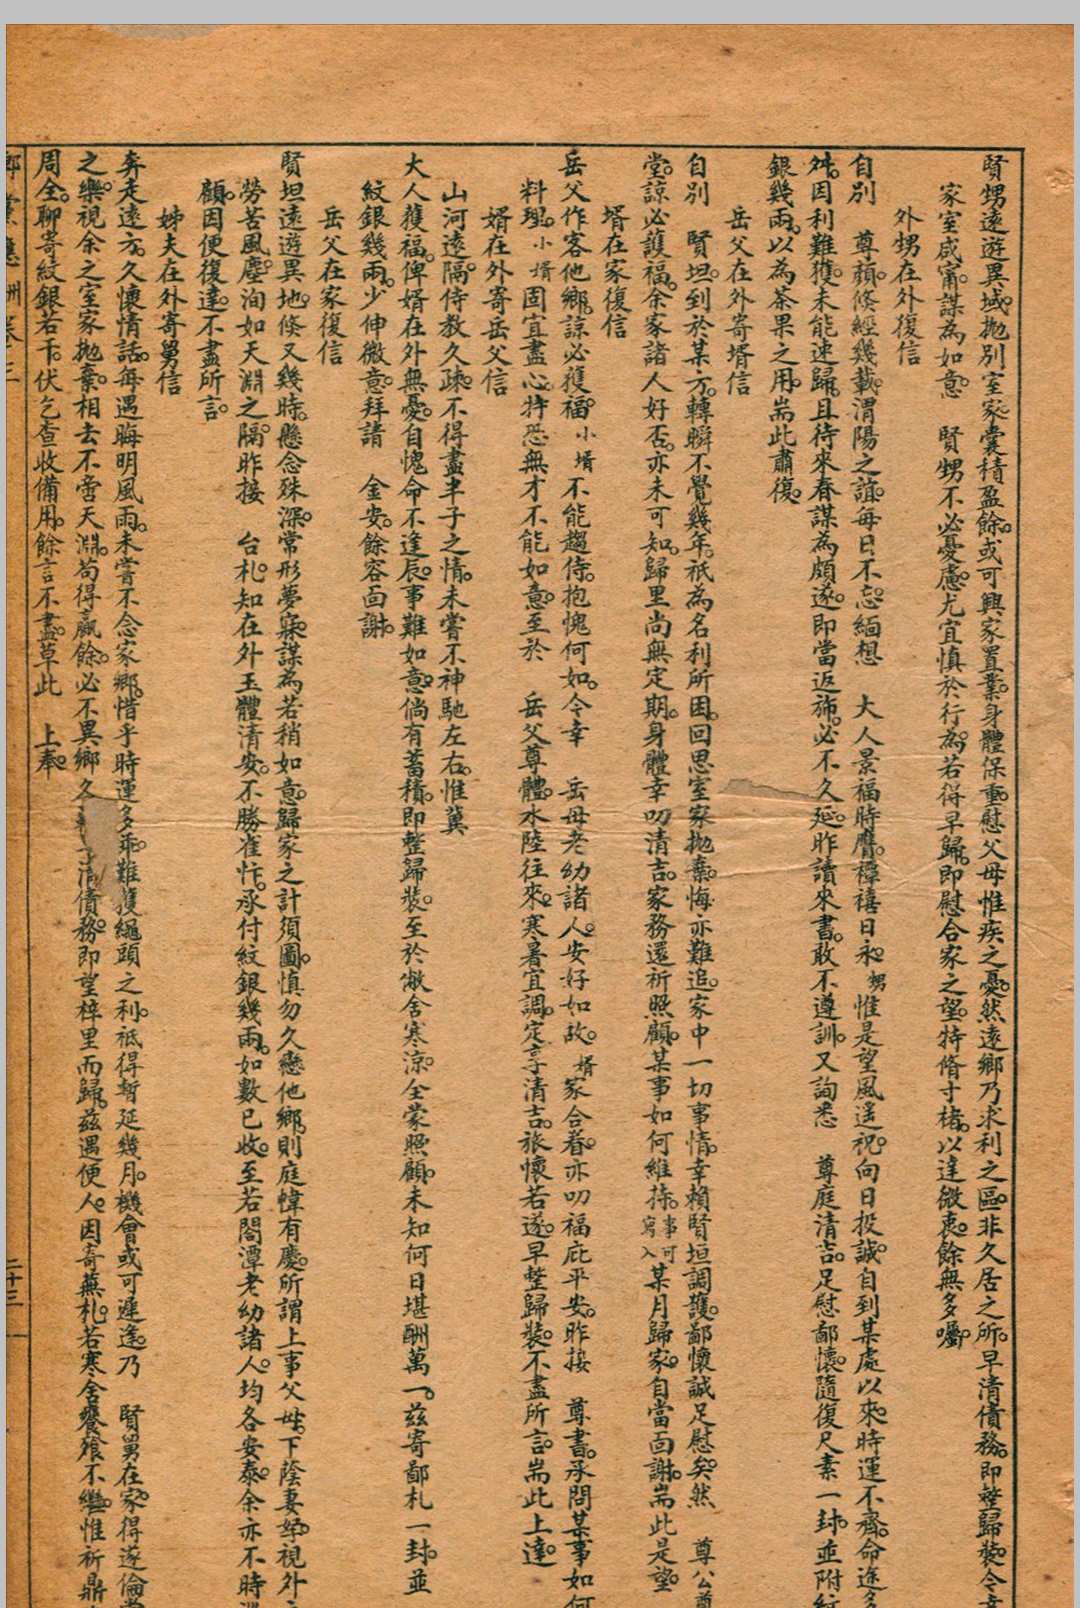 賢甥遠遊異域。拋別室家。囊積盈餘。或可興家置業。身體保重。慰父母惟疾之憂。然遠鄉乃求利之區。非久居之所。早清債務。即整歸裝。令
家室咸甯。謀為如意　賢甥不必憂慮。尤宜慎於行為。若得早歸。即慰合家之望。特脩寸楮。以達微衷。餘無多囑。
外甥在外復信
自別　尊顏倏經幾載。渭陽之誼。每日不忘。緬想　大人景福時膺。禫禧日永。甥惟是望風遙祝。向日投誠。自到某處以來。時運不齊。命途多
舛。因利難獲。未能速歸。且待來春謀為頗遂。即當返旆。必不久延。昨讀來書。敢不遵訓。又詢悉　尊庭清吉。足慰鄙懷。隨復尺素一封。並附紋
銀幾兩。以為茶果之用。耑此肅復。
岳父在外寄壻信
自別　賢坦。到於某方。轉瞬不覺幾年。祇為名利所困。回思室家拋棄。悔亦難追。家中一切事情。幸賴賢垣調護。鄙懷誠足慰矣。然　尊公尊
堂。諒必護福。余家諸人好否。亦未可知。歸里尚無定期。身體幸叨清吉。家務還祈照顧。某事如何維持。事可寫入某月歸家。自當面謝。耑此是望。
壻在家復信
岳父作客他鄉。諒必獲福。小壻不能趨侍。抱愧何如。今幸　岳母老幼諸人。安好如故。壻家合眷。亦叨福庇平安。昨接　尊書。承問某事如何
料理。小壻固宜盡心。特恐無才不能如意。至於　岳父尊體。水陸往來。寒暑宜調。定享清吉。旅懷若遂。早整歸裝。不盡所言。耑此上達。
婿在外寄岳父信
山河遠隔。侍教久疎。不得盡半子之情。未嘗不神馳左右。惟冀
大人獲福。俾婿在外無憂。自愧命不逢辰。事難如意。倘有蓄積。即整歸裝。至於敝舍寒涼。全蒙照顧。未知何日堪酬萬一。茲寄鄙札一封。並
紋銀幾兩。少伸微意。拜請　金安。餘容面謝。
岳父在家復信
賢坦遠遊異地。倏又幾時。懸念殊深。常形夢寐。謀為若稍如意。歸家之計須圖。慎勿久戀他鄉。則庭幃有慶。所謂上事父母。下蔭妻孥。視外
勞苦風塵。洵如天淵之隔。昨接　台札。知在外玉體清安。不勝雀忭。承付紋銀幾兩。如數已收。至若閤潭老幼諸人。均各安泰。余亦不時
顧。因便復達。不盡所言。
姊夫在外寄舅信
奔走遠方。久懷情話。每遇晦明風雨。未嘗不念家鄉。惜乎時運多乖。難獲繩頭之利。祗得暫延幾月。機會或可遲逢。乃　賢舅在家。得遂倫常
之樂。視余之室家拋棄。相去不啻天淵。苟得贏餘。必不異鄉久清債務。即望梓里而歸。茲遇便人。因寄蕪札。若寒舍饔飧不繼。惟祈鼎
周全。聊寄紋銀若干。伏乞查收備用。餘言不盡。草此　上奉。
二十三